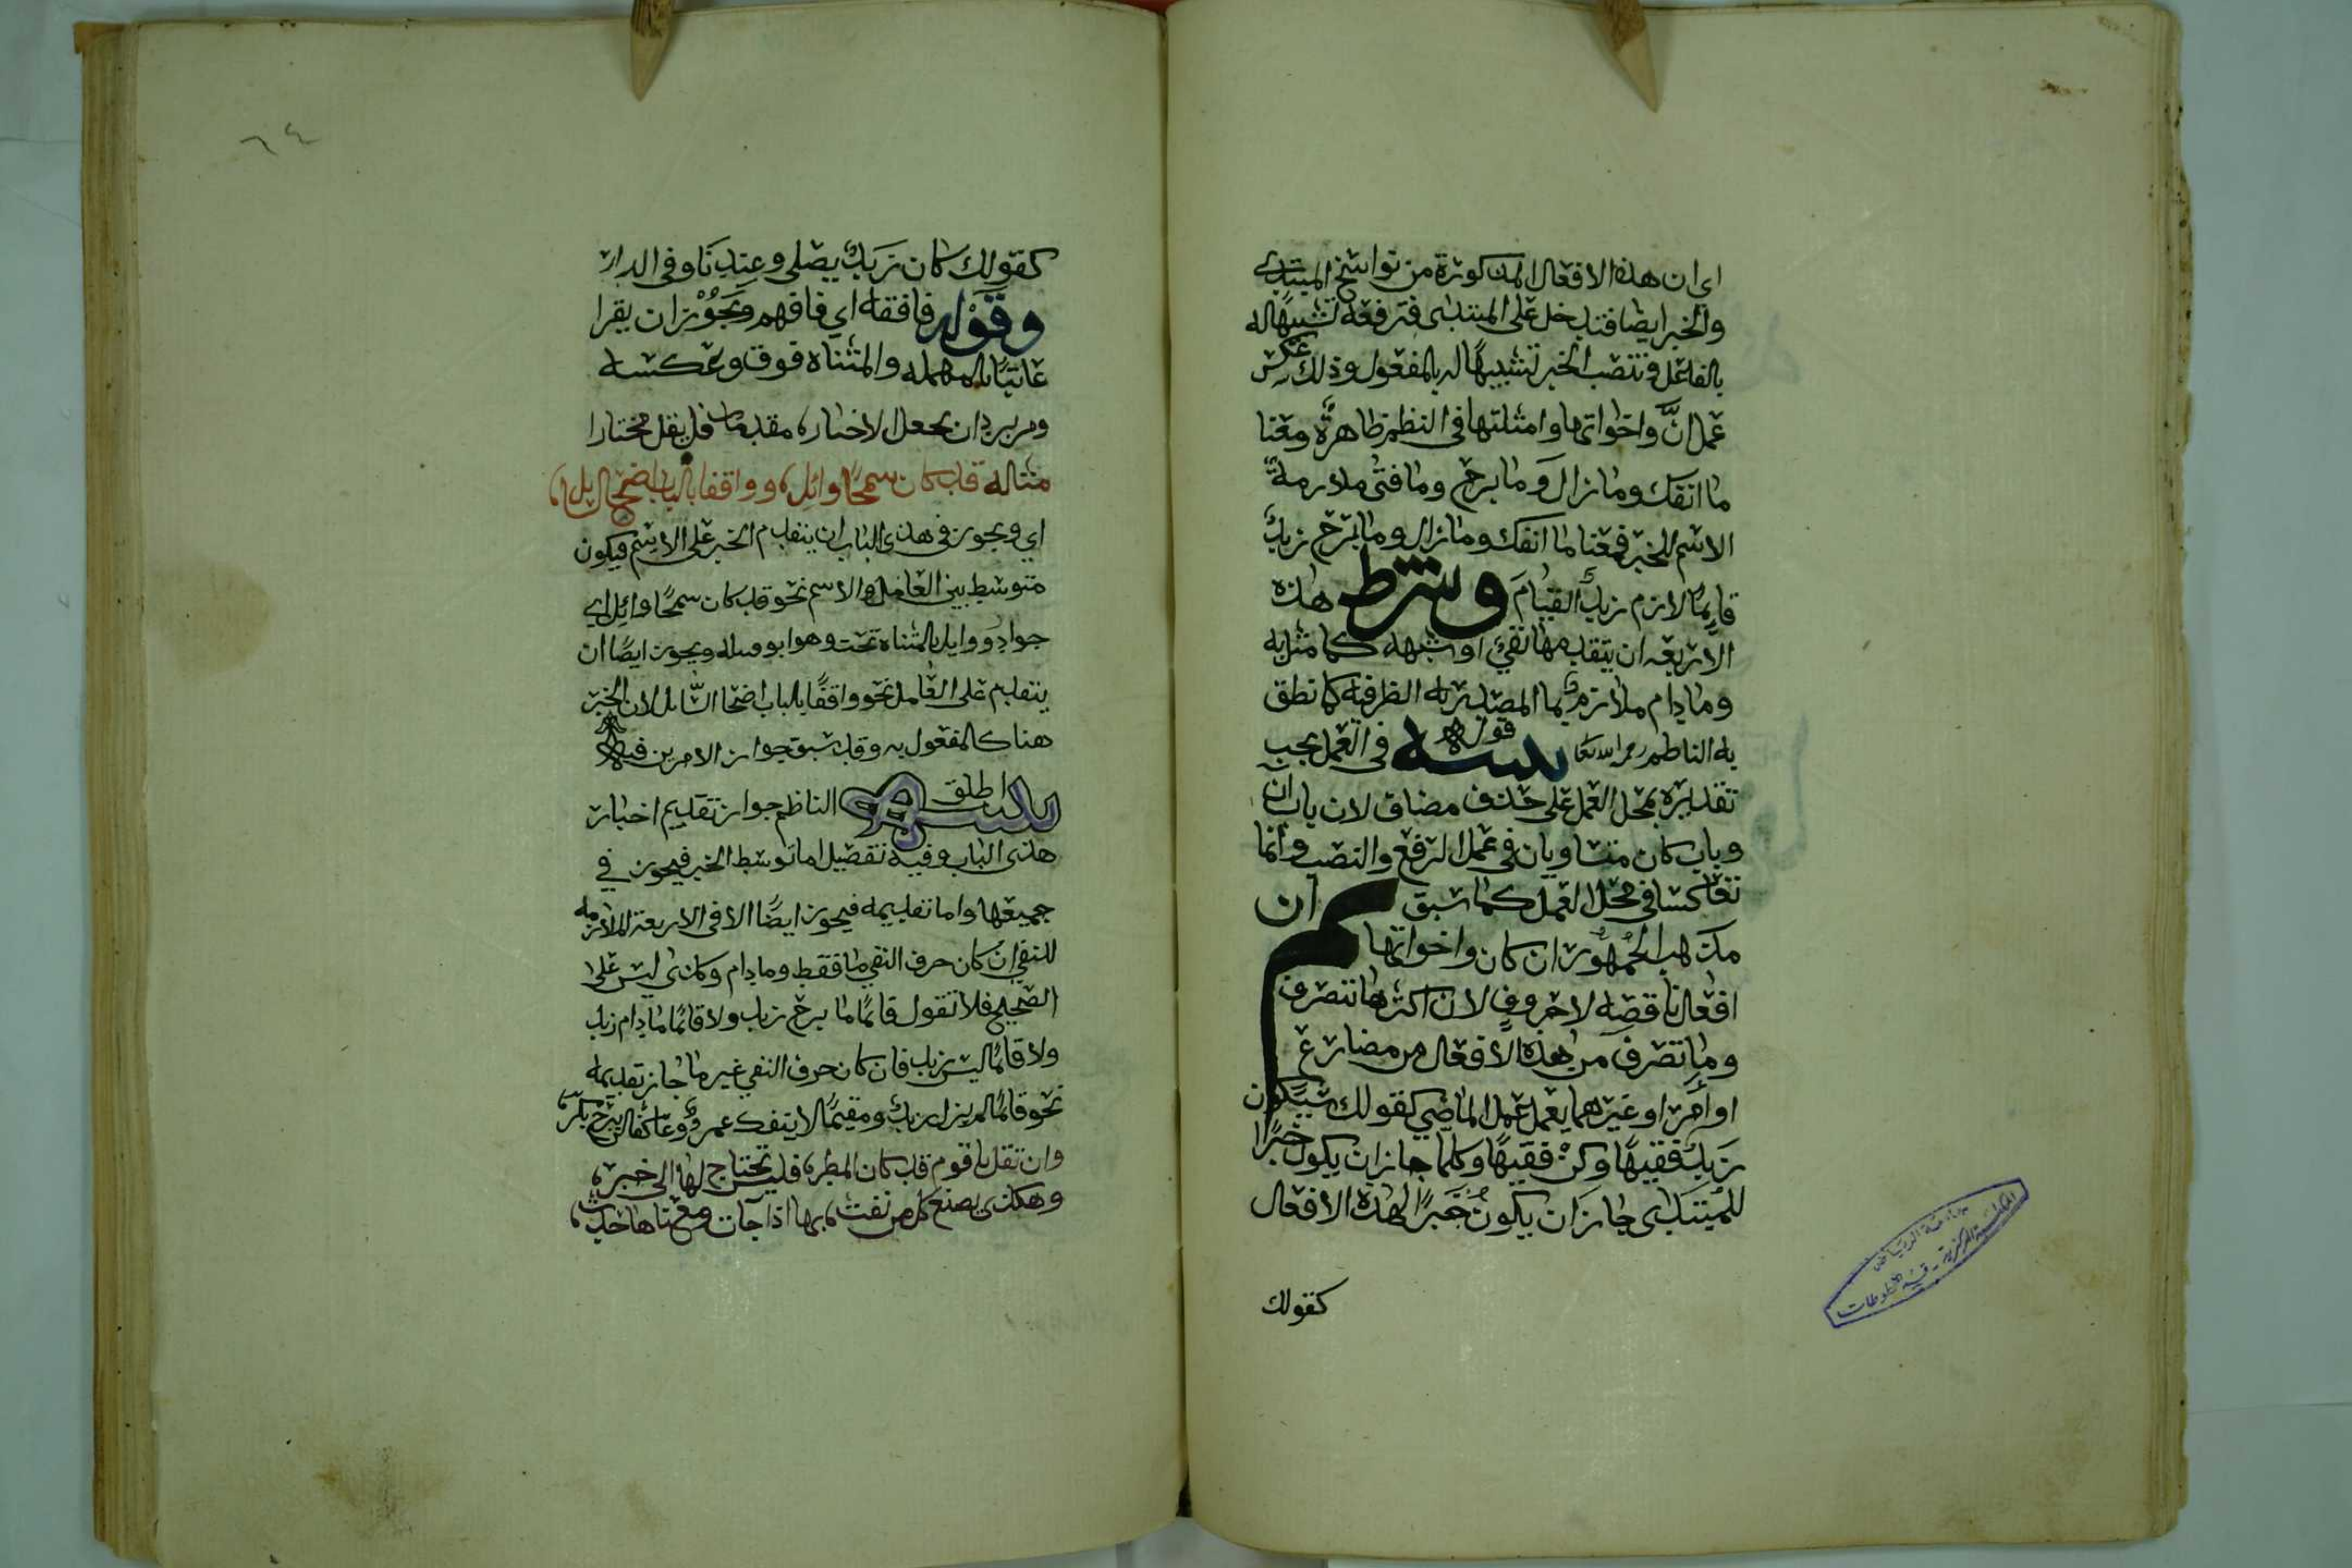 اي ان هذه الافعال المذكورة من نواسخ المبتدي
والخبر ايضا فتدخل على المبتدى فترفعه تشبيها له
بالفاعل وتنصب الخبر تشبيهًا له بالمفعول وذلك عكس
عمل انَّ واخواتها وامثلتها في النظم ظاهرة ومعنا
ما انفك وما زال وما برح وما فتى ملازمة
الاسم للخبر فمعنا ما انفك وما زال وما برح زيدٌ
قايمًا لازم زيدٌ القيامَ وشرط هذه
الاربعه ان يتقدمها نفيٌ او شبهه كما مثل به
وما دام ملازمٌ لما المصدريه الظرفيه كما نطق
به الناظم رحمه الله تعا تنبيه قوله في العمل يجب
تقديره بمحل العمل على حذف مضاف لان باب ان
وباب كان متساويان في عمل الرفع والنصب وانما
تعاكسا في محل العمل كما سبق ثم ان
مذهب الجُمهُور ان كان واخواتها
افعال ناقصه لا حروفٍ لان اكثرها تتصرف
وما تصرف من هذه الافعال من مضارع
او امرٍ او غيرهما يعمل عمل الماضي كقولك سيكون
زيدٌ فقيهًا وكنْ فقيهًا وكلما جاز ان يكون خبرًا
للمبتدى جاز ان يكون خبرًا لهذه الافعال
كقولك
٦٤
كقولك كان زيدٌ يصلي وعندنا وفي الدار
وقوله فافقه اي فافهم ويجوز ان يقرا
عاتبًا بالمهمله والمثناه فوق وعكسه
ومن يرد ان يجعل الاخبارا مقدمات فليقل مختارا
مثاله قد كان سمحًا وائل وواقفا بالباب اضحى السائل
اي ويجوز في هذى الباب ان يتقدم الخبر على الاسم فيكون
متوسط بين العامل والاسم نحو قد كان سمحًا وائل اي
جوادٌ ووايل بالمثناه تحت وهو ابو قبيله ويجوز ايضًا ان
يتقدم على العامل نحو واقفًا بالباب اضحا السَّايل لان الخبر
هنا كالمفعول به وقد سبق جواز الامرين فيه
تنبيه اطلق الناظم جواز تقديم اخبار
هذى الباب وفيه تفصيل اما توسط الخبر فيجوز في
جميعها واما تقديمه فيجوز ايضًا الا في الاربعة الملازمه
للنفي ان كان حرف النفي ما فقط وما دام وكذى ليس على
الصحيح فلا تقول قائمًا ما برح زيد ولا قائمًا ما دام زيد
ولا قائمًا ليس زيد فان كان حرف النفي غير ما جاز تقديمه
نحو قائمًا لم يزل زيدٌ ومقيمًا لا ينفك عمروٌ وعاكفا لن يبرح بكرٌ
وان تقل يا قوم قد كان المطر فليس تحتاج لها الى خبر
وهكذى يصنع كل من نفث بها اذا جات ومعناها حدث
جامعة الرياض
المكتبة المركزية - قسم المخطوطات